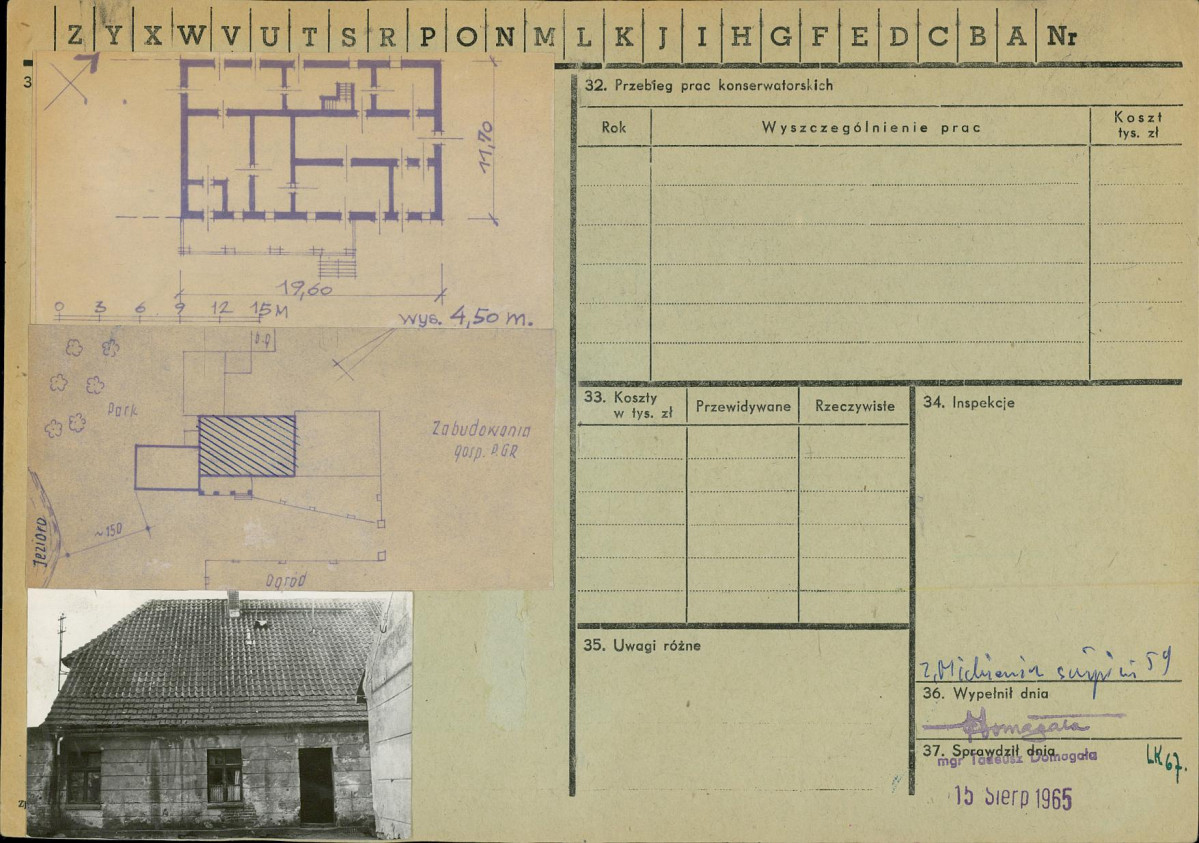 Z Y X W V U T S R P O N M L K J I H G F E D C B A Nr
3
11,70
19,60
0 3 6 9 12 15M
wys. 4,50 m.
Park
Zabudowania
gosp. PGR
Jezioro
~150
Ogród
32. Przebieg prac konserwatorskich
Rok
Wyszczególnienie prac
Koszt
tys. zł
33. Koszty
w tys. zł
Przewidywane
Rzeczywiste
34. Inspekcje
35. Uwagi różne
sierpień 59
36. Wypełnił dnia
Domagała
37. Sprawdził dnia
mgr Tadeusz Domagała
15 Sierp 1965
LK 67.